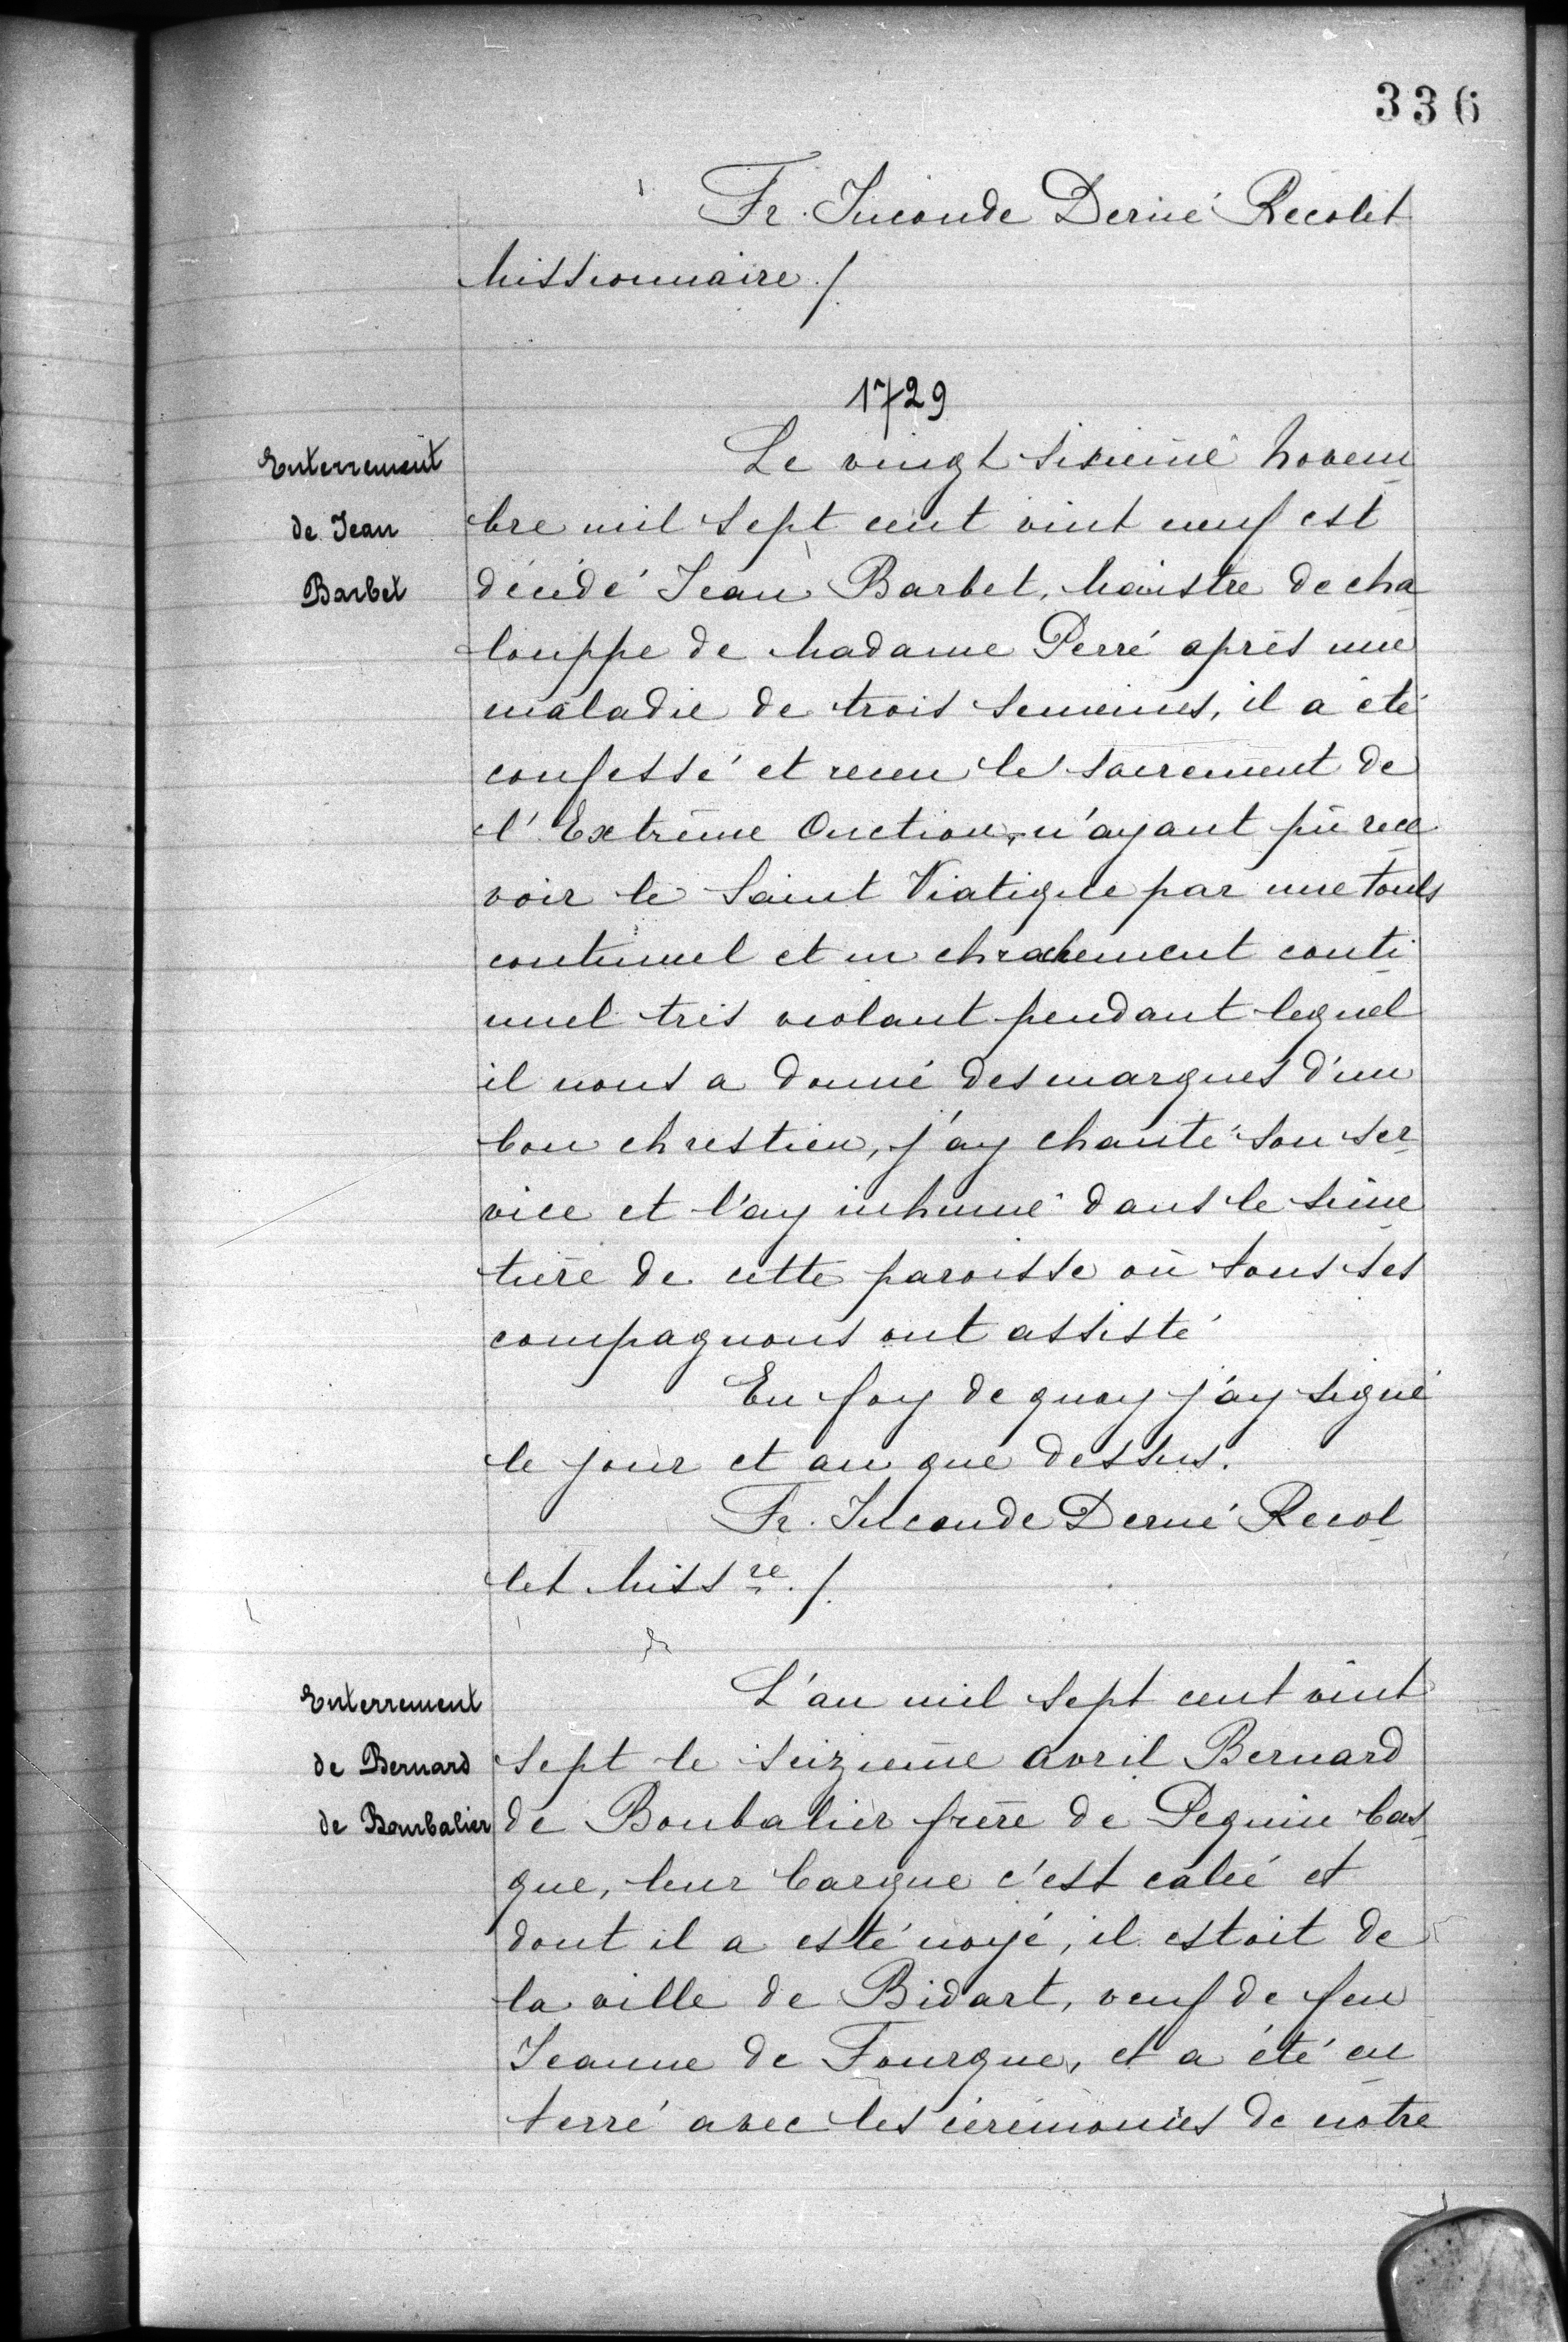 336
Fr. Juconde Derué Recolet
Missionnaire /.
1729
Enterrement
de Jean
Barbet
Le vingt sixième Novem
bre mil sept cent vint neuf est
décédé Jean Barbet, Maistre de cha
louppe de Madame Perré après une
maladie de trois semeines, il a été
confessé et receu le sacrement de
l'Extrême Onction, n'ayant pû rece
voir le Saint Viatique par une touls
continuel et un chrachement conti
nuel très violant pendant lequel
il nous a donné des marques d'un
bon chrestien, j'ay chanté son ser
vice et l'ay inhumé dans le sime
tière de cette paroisse où tous ses
compagnons ont assisté
En foy de quoy j'ay signé
le jour et an que dessus.
Fr. Juconde Derué Recol
let Miss re. /.
Enterrement
de Bernard
de Bourbalier
L'an mil sept cent vint
sept le seizieme avril Bernard
de Boubalier frère de Pequin bas
que, leur barque c'est calée et
dont il a esté noyé, il estoit de
la ville de Bidart, veuf de feu
Jeanne de Fourque, et a été en
terré avec les cérémonies de notre